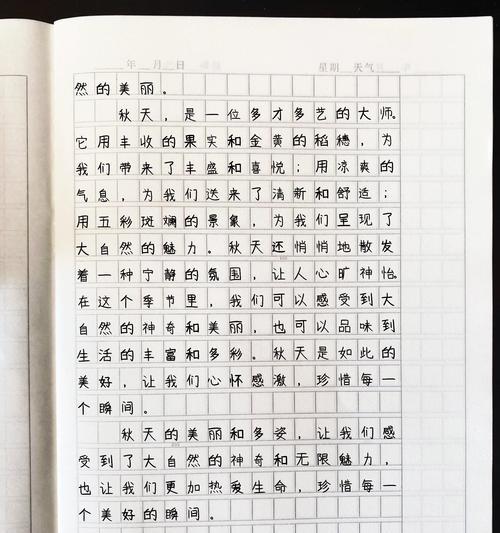 年 月 日 星期 天气
然的美丽。
秋天,是一位多才多艺的大师。
它用丰收的果实和金黄的稻穗,为
我们带来了丰盛和喜悦;用凉爽的
气息,为我们送来了清新和舒适;
用五彩斑斓的景象,为我们呈现了
大自然的魅力。秋天还悄悄地散发
着一种宁静的氛围,让人心旷神怡。
在这个季节里,我们可以感受到大
自然的神奇和美丽,也可以品味到
生活的丰富和多彩。秋天是如此的
美好,让我们心怀感激,珍惜每一
个瞬间。
秋天的美丽和多姿,让我们感
受到了大自然的神奇和无限魅力,
也让我们更加热爱生命,珍惜每一
个美好的瞬间。